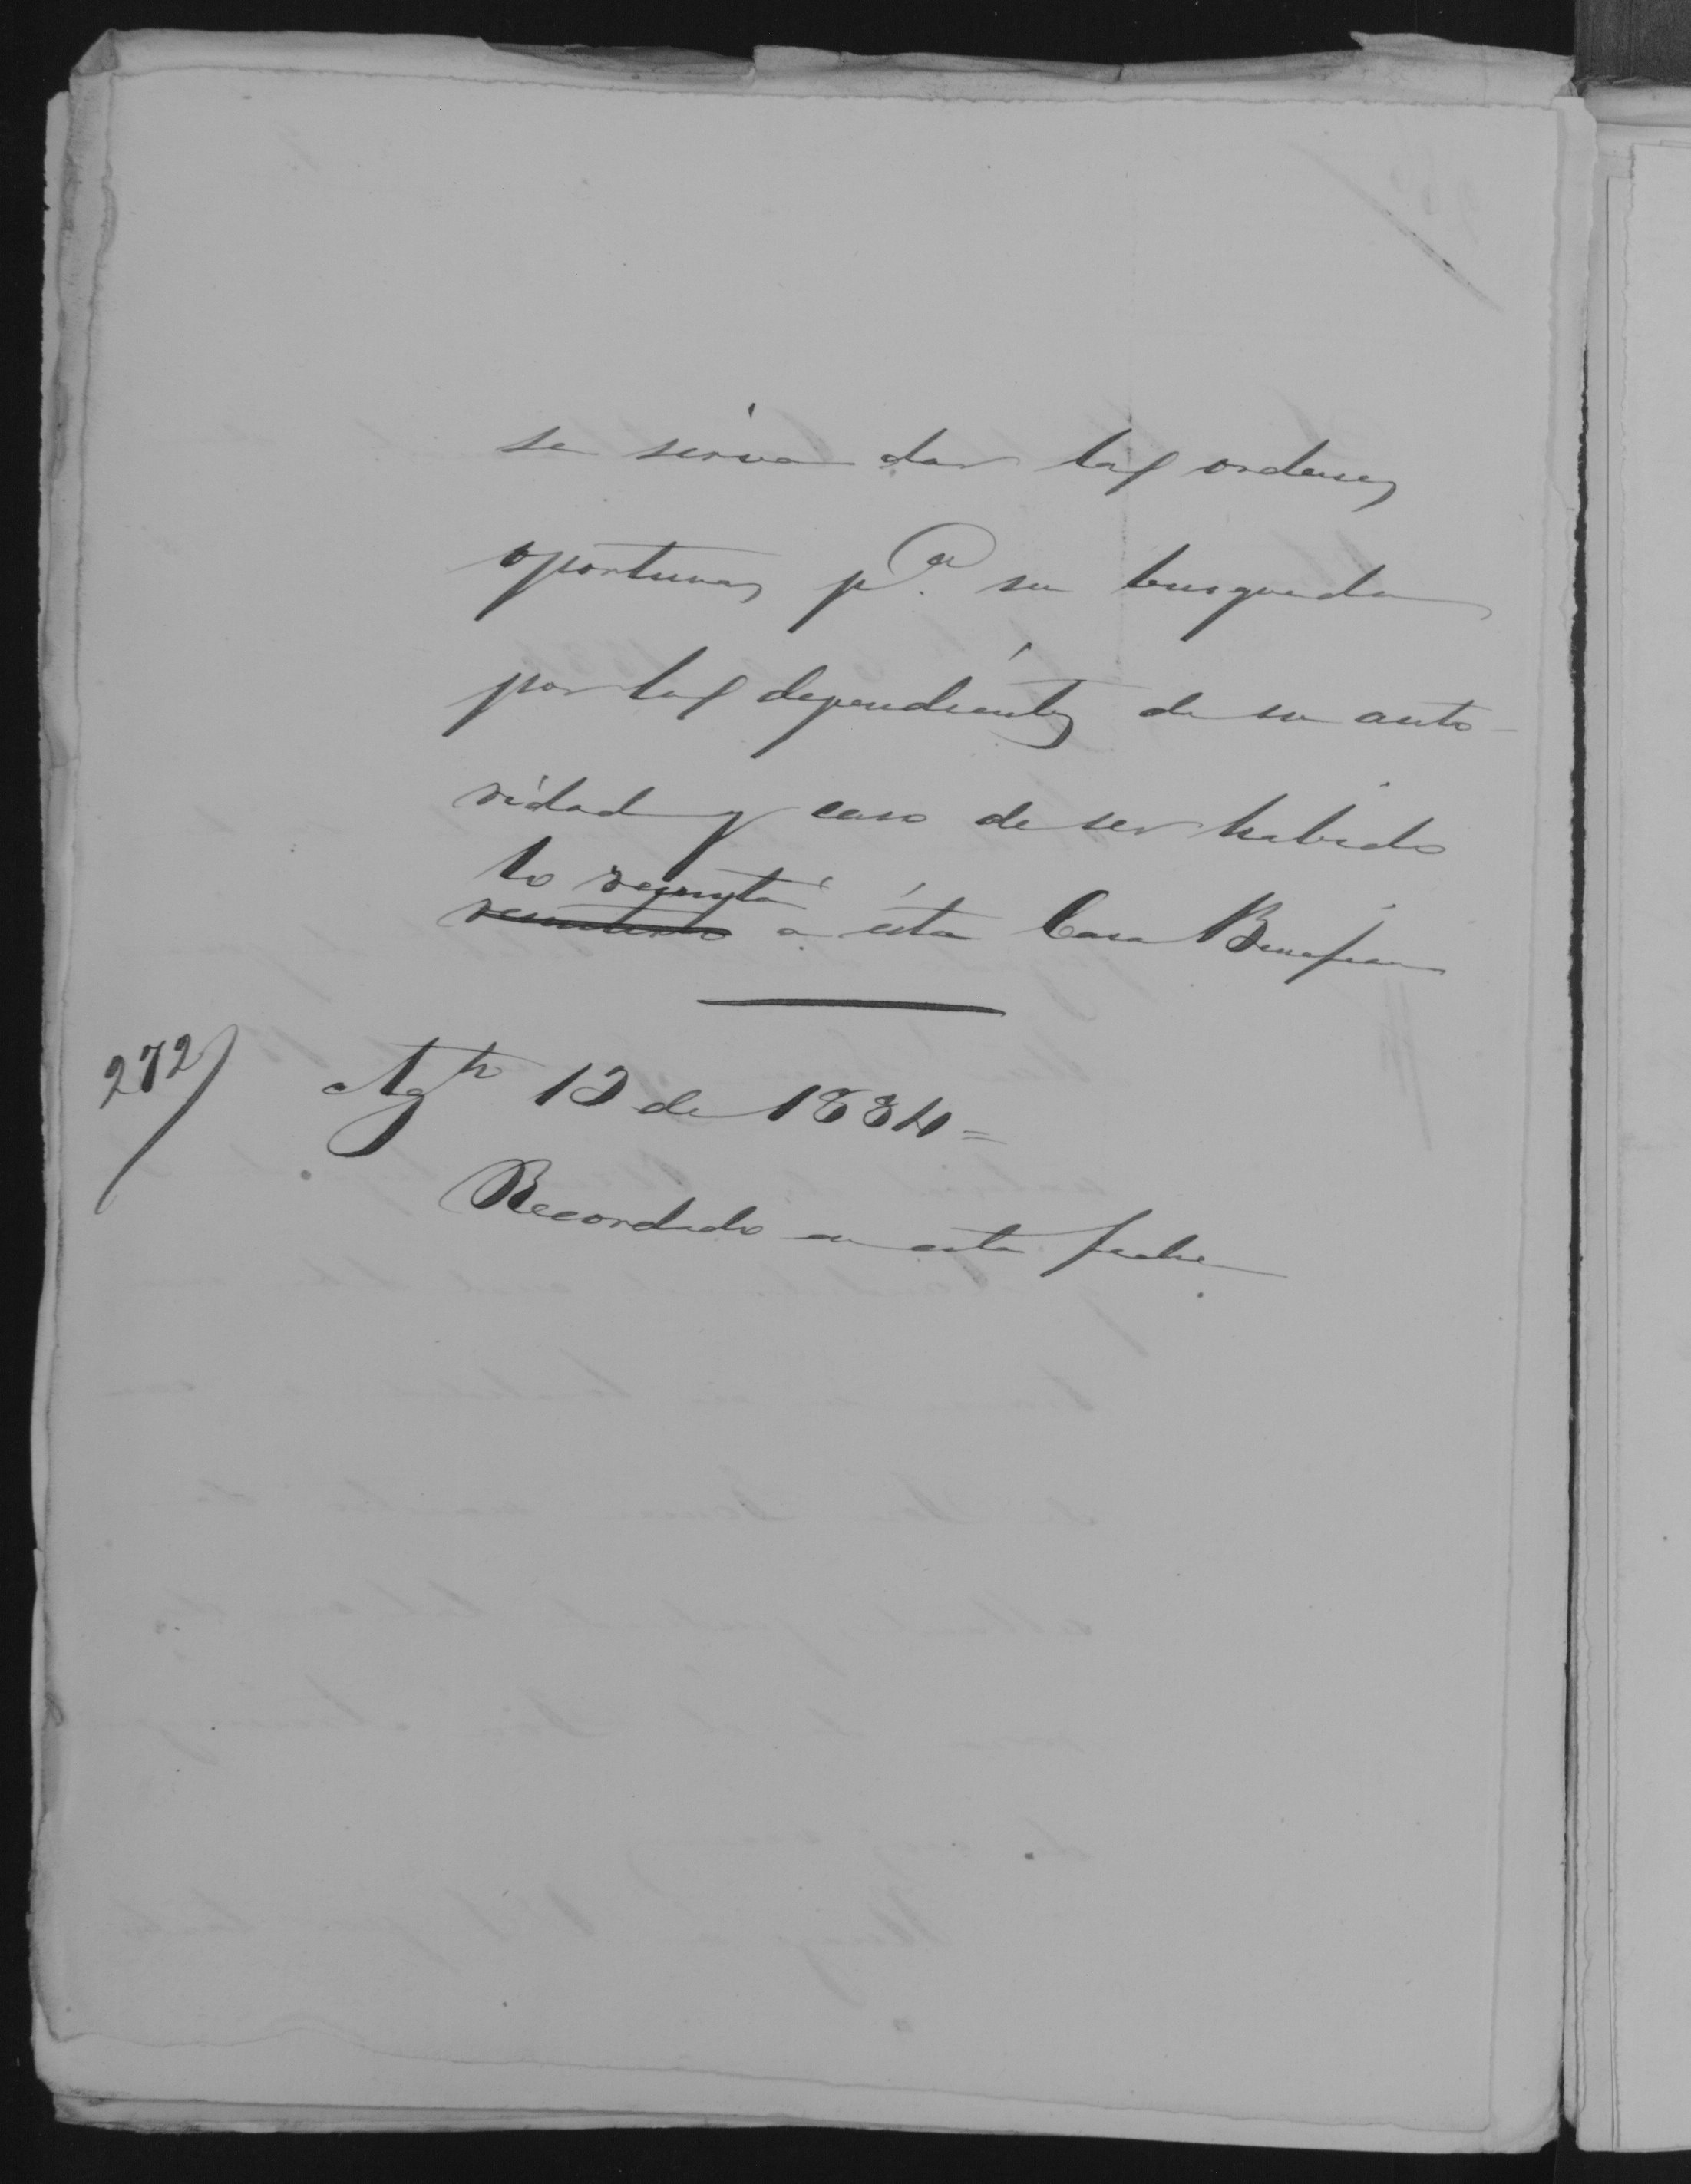 se sirva dar las ordenes
oportunas pª. su busqueda
por los dependientes de su auto-
ridad y caso de ser habido
lo remita
remitirlo á ésta Casa Benefica
272/ Agto 12 de 1884=
Recordado en esta fecha